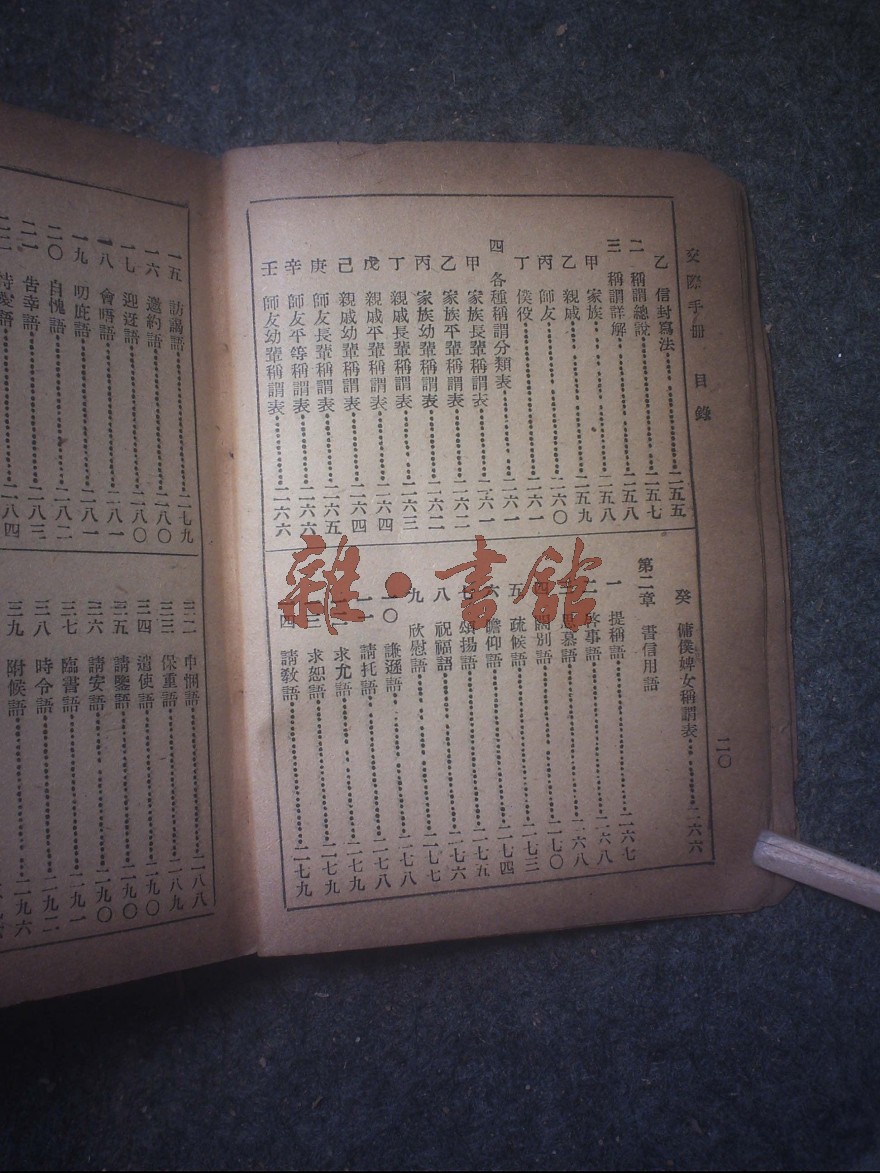 交際手册　目錄
二〇
乙　信封寫法……二五五
二　稱謂總說……二五七
三　稱謂詳解……二五八
甲　家族……二五八
乙　親戚……二五九
丙　師友……二六〇
丁　僕役……二六一
四　各種稱謂分類表……二六一
甲　家族長輩稱謂表……二六一
乙　家族平輩稱謂表……二六二
丙　家族幼輩稱謂表……二六二
丁　親戚長輩稱謂表……二六三
戊　親戚平輩稱謂表……二六四
己　親戚幼輩稱謂表……二六四
庚　師友長輩稱謂表……二六五
辛　師友平等稱謂表……二六六
壬　師友幼輩稱謂表……二六六
癸　傭僕婢女稱謂表……二六六
第二章　書信用語
一　提稱語……二六七
二　啓事語……二六八
慕語……二六八
四　闊別語……二七〇
五　疏候語……二七三
六　瞻仰語……二七四
七　頌揚語……二七五
八　祝福語……二七六
九　欣慰語……二七七
一〇　謙遜語……二七八
一一　請托語……二七八
求允語……二七九
一三　求恕語……二七九
一四　請教語……二七九
一五　訪謁語……二七九
一六　邀約語……二八〇
一七　迎迓語……二八〇
一八　會晤語……二八一
一九　叨庇語……二八一
二〇　自愧語……二八二
二一　告幸語……二八三
二二　恃愛語……二八四
三二　申悃語……二八八
三三　保重語……二八九
三四　遣使語……二九〇
三五　請鑒語……二九〇
三六　請安語……二九〇
三七　臨書語……二九一
三八　時令語……二九二
三九　附候語……二九六
雜·書館